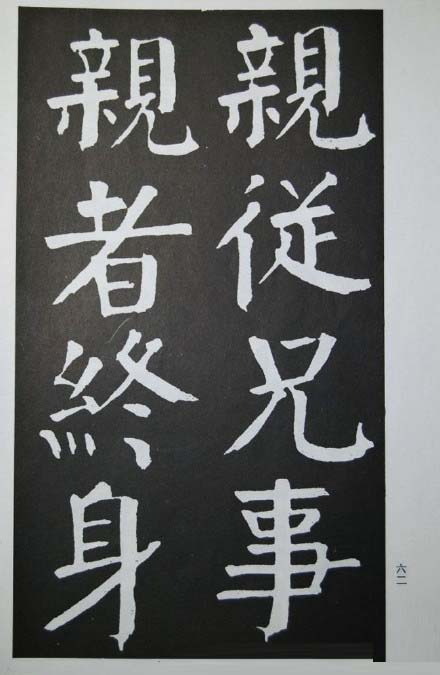 親従兄事
親者終身
六二